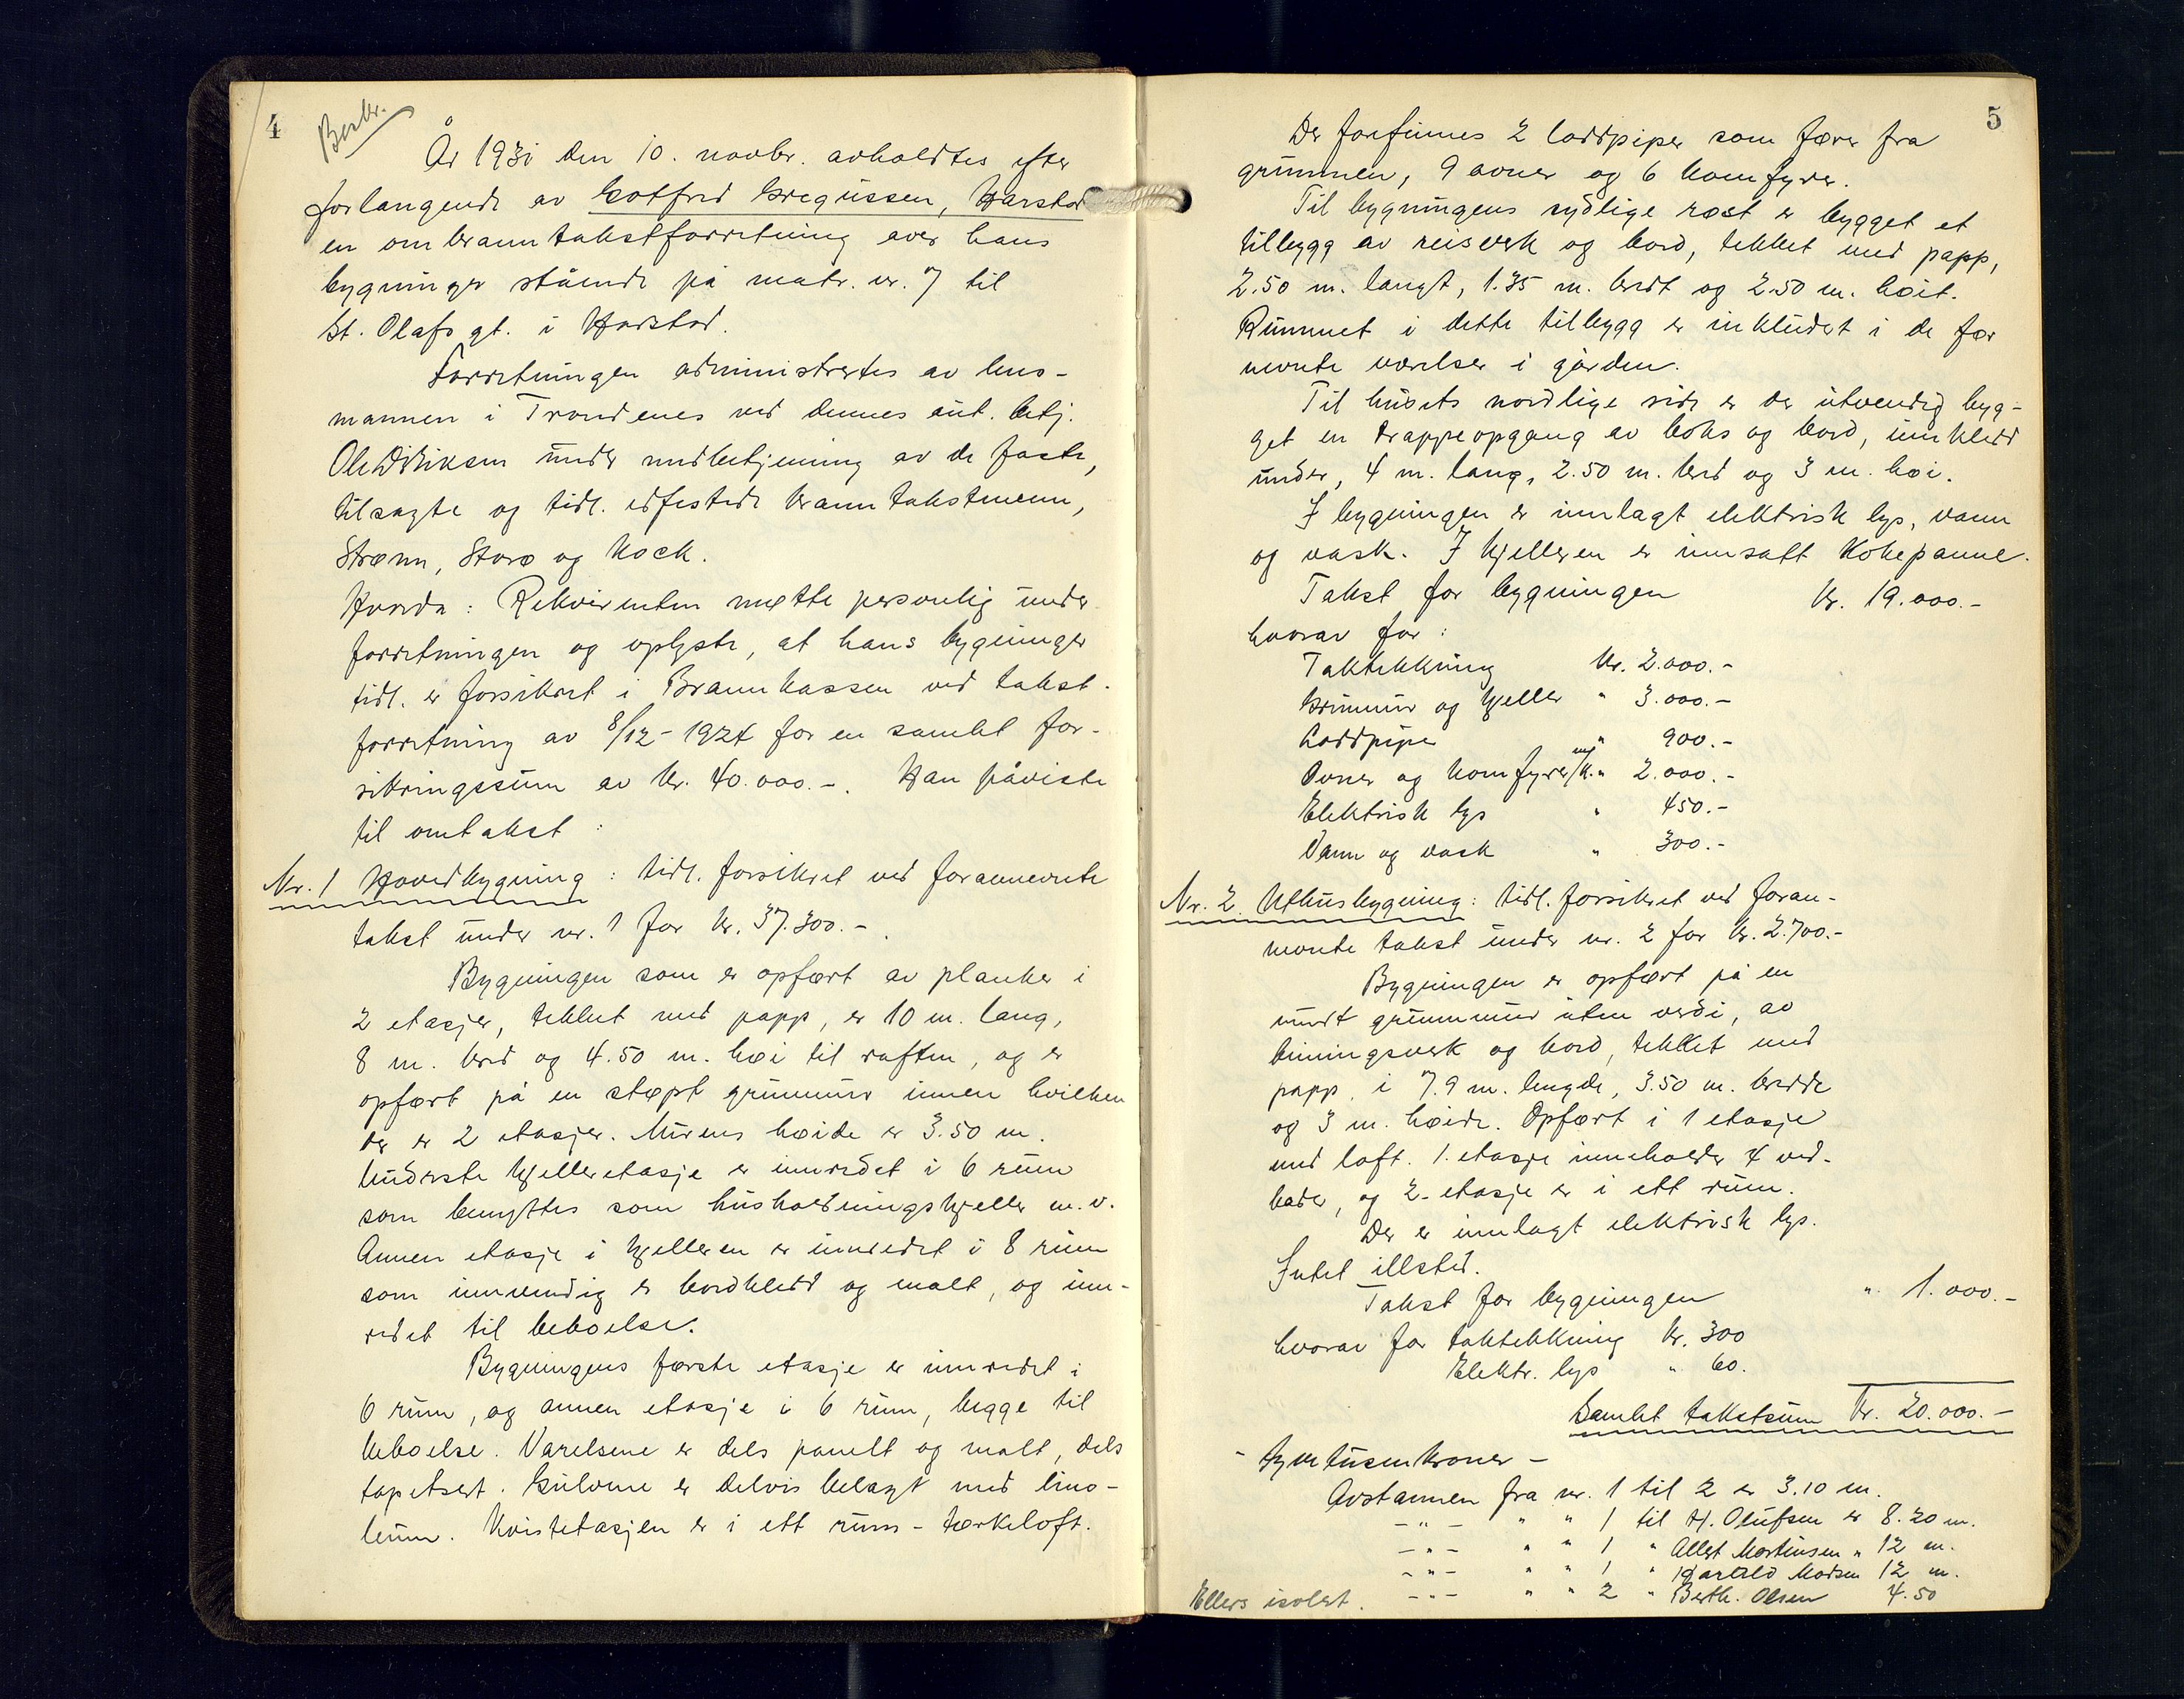 4
Beskr.
År 1931 den 10. novbr. avholdtes efter
forlangende av Gotfred Gregussen, Harstad
en ombranntakstforretning over hans
bygninger stående på matr. nr. 7 til
St. Olafs gt. i Harstad.
Forretningen administrertes av lens-
mannen i Trondenes ved dennes aut. betj.
Ole Didriksen under medbetjening av de faste,
tilsagte og tidl. edfestede branntakstmenn,
Strøm, Storø og Kock.
Hvorda: Rekvirenten møtte personlig under
forretningen og oplyste, at hans bygninger
tidl. er forsikret i Brannkassen ved takst-
forretning av 8/12-1924 for en samlet for-
sikringssum av kr. 40.000.-. Han påviste
til omtakst:
Nr. 1 Hovedbygning: tidl. forsikret ved forannevnte
takst under nr. 1 for kr. 37.300.-.
Bygningen som er opført av planker i
2 etasjer, tekket med papp, er 10 m. lang,
8 m. bred og 4.50 m. høi til raften, og er
opført på en støpt grunnmur innen hvilken
der er 2 etasjer. Murens høide er 3.50 m.
Underste kjelleretasje er innredet i 6 rum
som benyttes som husholdningskjeller m. v.
Annen etasje i kjelleren er innredet i 8 rum
som innvendig er bordkledd og malt, og inn-
redet til beboelse.
Bygningens første etasje er innredet i
6 rum, og annen etasje i 6 rum, begge til
beboelse. Værelsene er dels panelt og malt, dels
tapetsert. Gulvene er delvis belagt med lino-
leum. Kvistetasjen er i ett rum - tørkeloft.
5
Der forefinnes 2 loddpiper som fører fra
grunnen, 9 ovner og 6 komfyrer.
Til bygningens sydlige røst er bygget et
tilbygg av reisverk og bord, tekket med papp,
2.50 m. langt, 1.35 m. bredt og 2.50 m. høit.
Rummet i dette tilbygg er inkludert i de før
nevnte værelser i gården.
Til husets nordlige side er der utvendig byg-
get en trappeopgang av boks og bord, innkledd
under, 4 m. lang, 2.50 m. bred og 3 m. høi.
I bygningen er innlagt elektrisk lys, vann
og vask. I kjelleren er innsatt kokepanne.
Takst for bygningen kr. 19.000.-
hvorav for:
Taktekkning kr. 2.000.-
Grunnmur og kjeller " 3.000.-
Loddpipe " 900.-
Ovner og komfyrer m/k. " 2.000.-
Elektrisk lys " 450.-
Vann og vask " 300.-
Nr. 2. Uthusbygning: tidl. forsikret ved foran-
nevnte takst under nr. 2 for kr. 2.700.-
Bygningen er opført på en
muret grunnmur uten verdi, av
binningsverk og bord, tekket med
papp, i 7.9 m. lengde, 3.50 m. bredde
og 3 m. høide. Opført i 1 etasje
med loft. 1. etasje inneholder 4 ved-
boder, og 2. etasje er i ett rum.
Der er innlagt elektrisk lys.
Intet illsted.
Takst for bygningen " 1.000.-
hvorav for taktekkning kr. 300
Elektr. lys " 60.
Samlet takstsum kr. 20.000.-
- tyvetusen kroner -
Avstannen fra nr. 1 til 2 er 3.10 m.
-"- " " 1 til H. Olufsen er 8.20 m.
-"- " " 1 " Albert Mortinsen " 12 m.
-"- " " 1 " Harald Madsen 12 m.
Ellers isolert. -"- " " 2 " Berth. Olsen 4.50